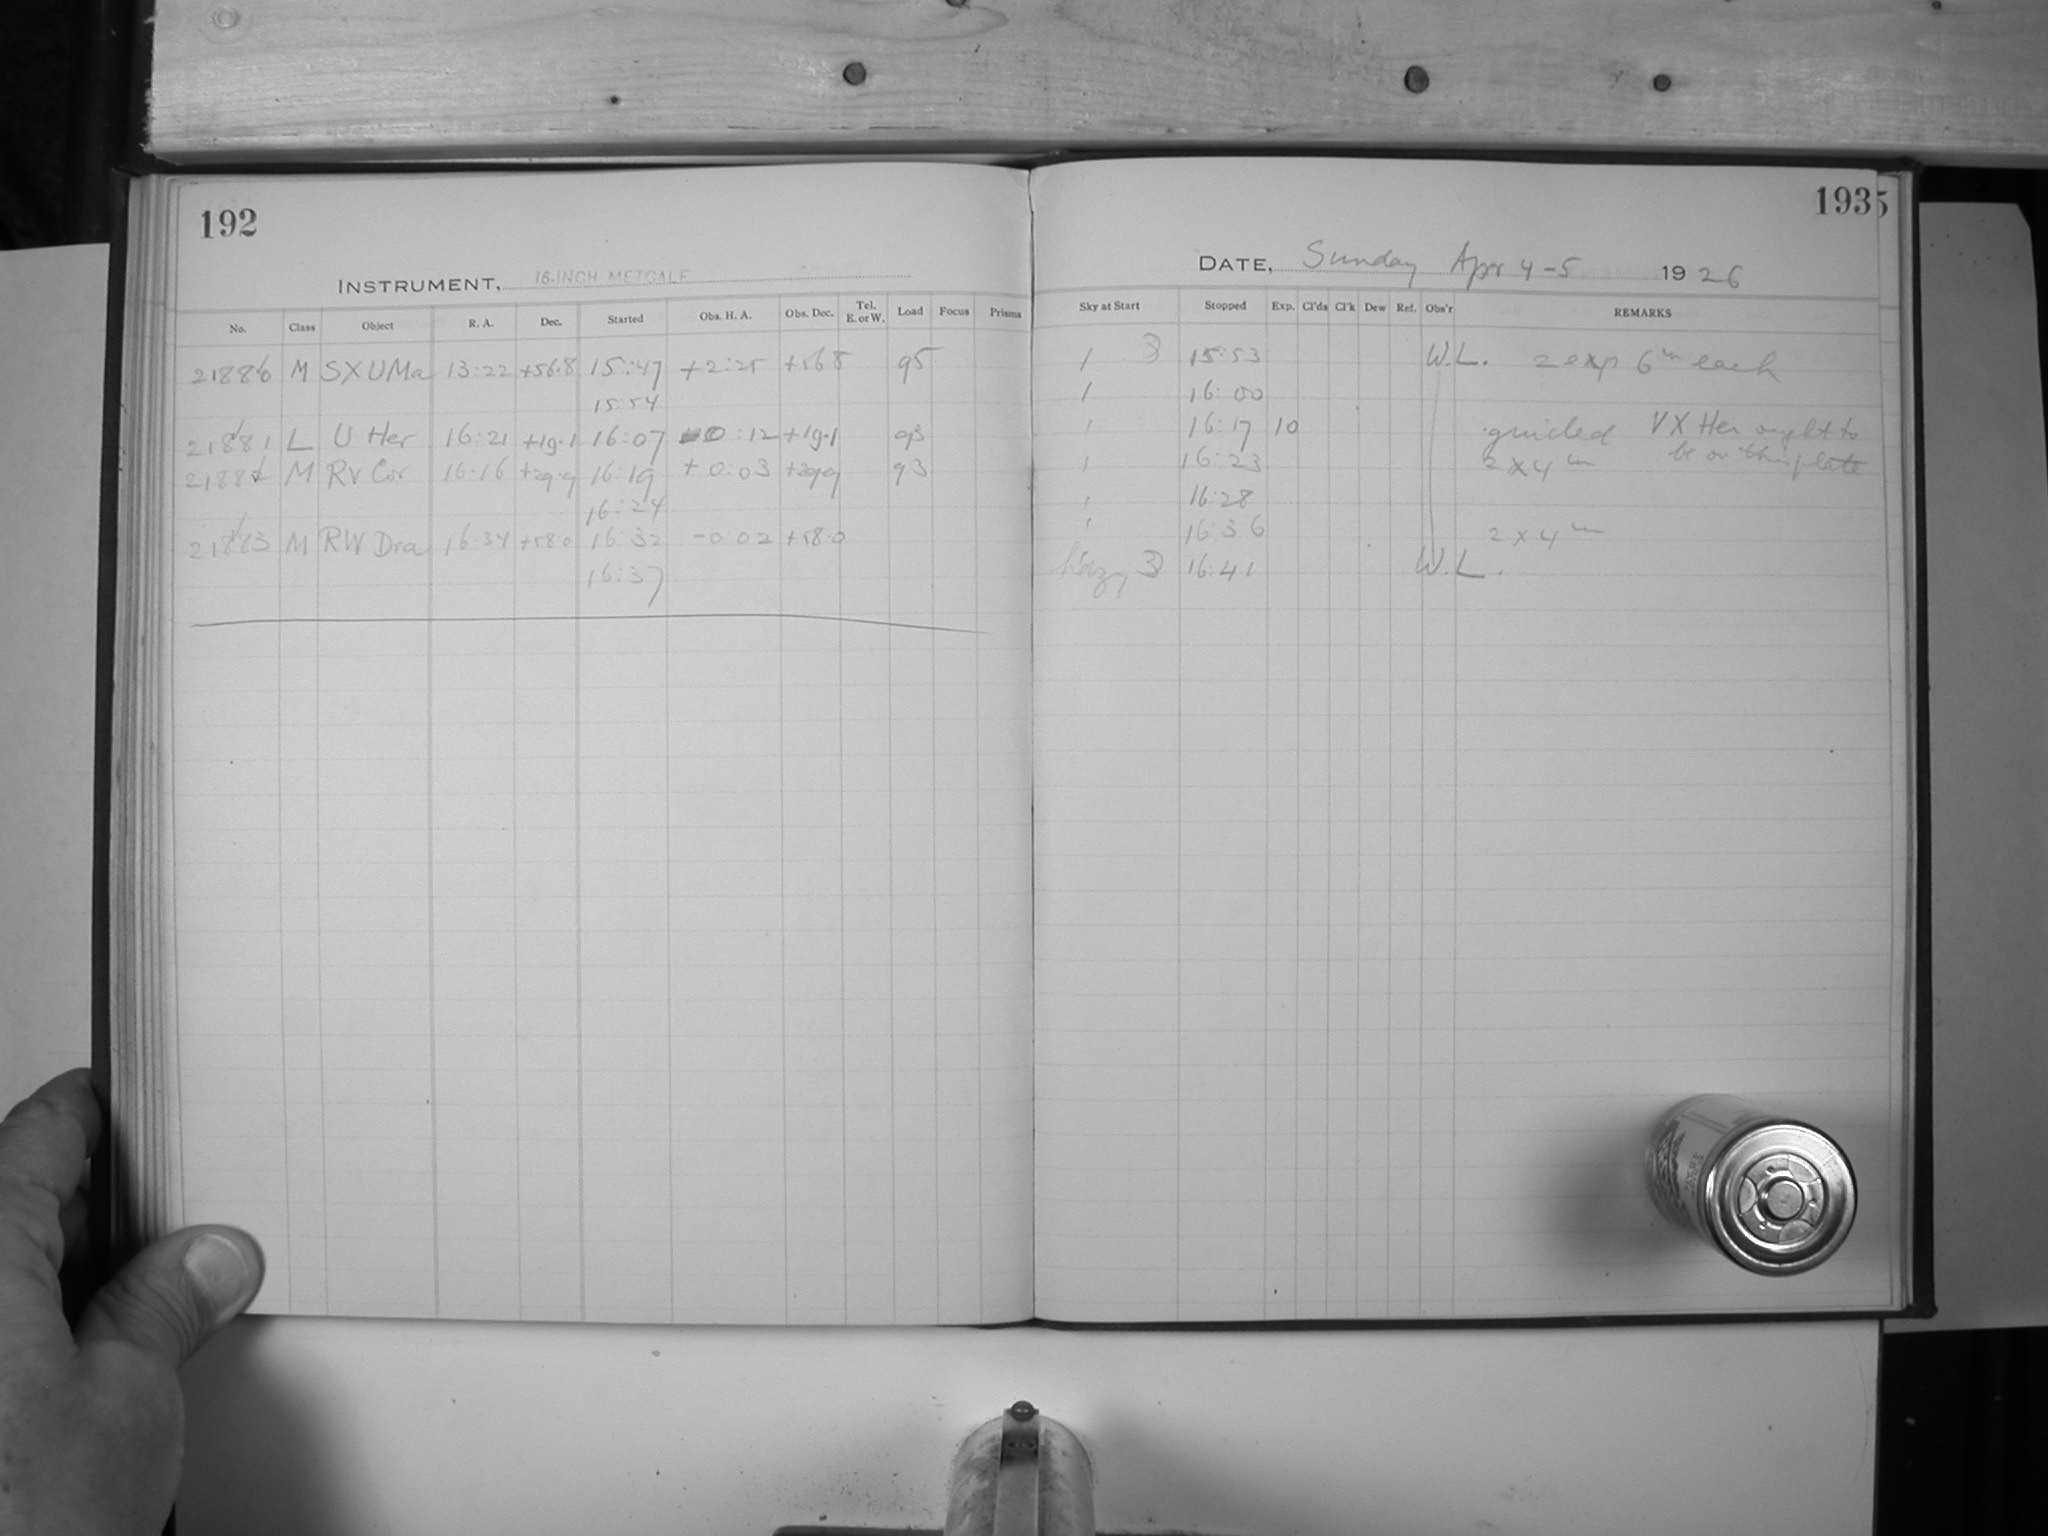 192
INSTRUMENT, 16-INCH METCALF
No. Class Object R. A. Dec. Started Obs. H. A. Obs. Dec. Tel. E. or W. Load Focus Prisms
M SX UMa 13:22 +56.8 15:47 +2:25 +56.8 95
15:54
21881 L U Her 16:21 +19.1 16:07 0:12 +19.1 93
M RV Cor 16:16 +29.9 16:19 +0:03 +29.9 93
16:24
21883 M RW Dra 16:34 +58.0 16:32 -0:02 +58.0
16:37
1935
DATE, Sunday Apr 4-5 1926
Sky at Start Stopped Exp. Cl'ds Cl'k Dew Ref. Obs'r REMARKS
1 3 15:53 W.L. 2 exp 6m each
1 16:00
1 16:17 10 guided VX Her ought to
be on this plate
1 16:23 2 x 4m
1 16:28
1 16:36 2 x 4m
hazy 3 16:41 W.L.